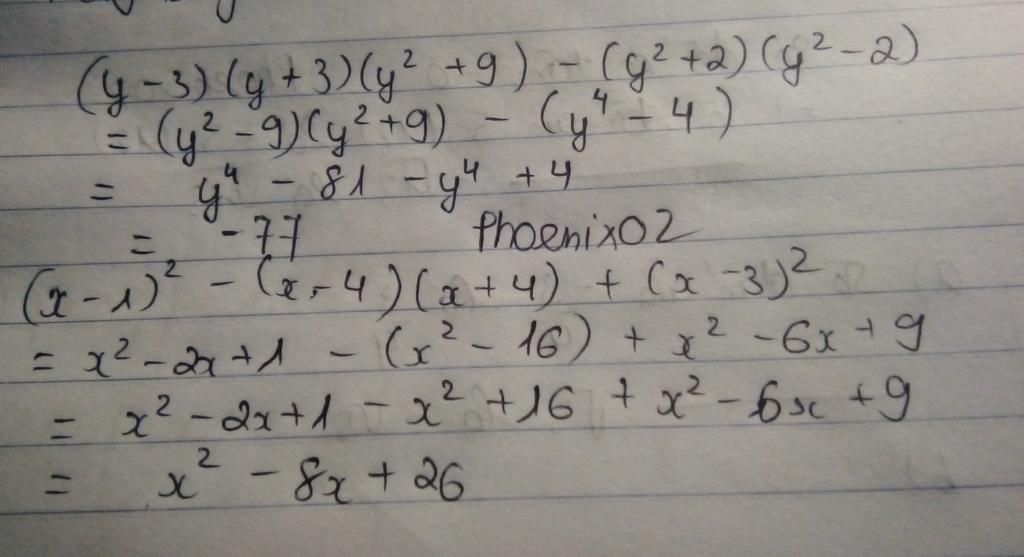 (y-3)(y+3)(y² +9) - (y²+2)(y²-2)
= (y² -9)(y²+9) - (y⁴ - 4)
= y⁴ - 81 - y⁴ + 4
= -77 Phoenix02
(x-1)² - (x-4)(x+4) + (x-3)²
= x² - 2x + 1 - (x² - 16) + x² - 6x + 9
= x² - 2x + 1 - x² + 16 + x² - 6x + 9
= x² - 8x + 26